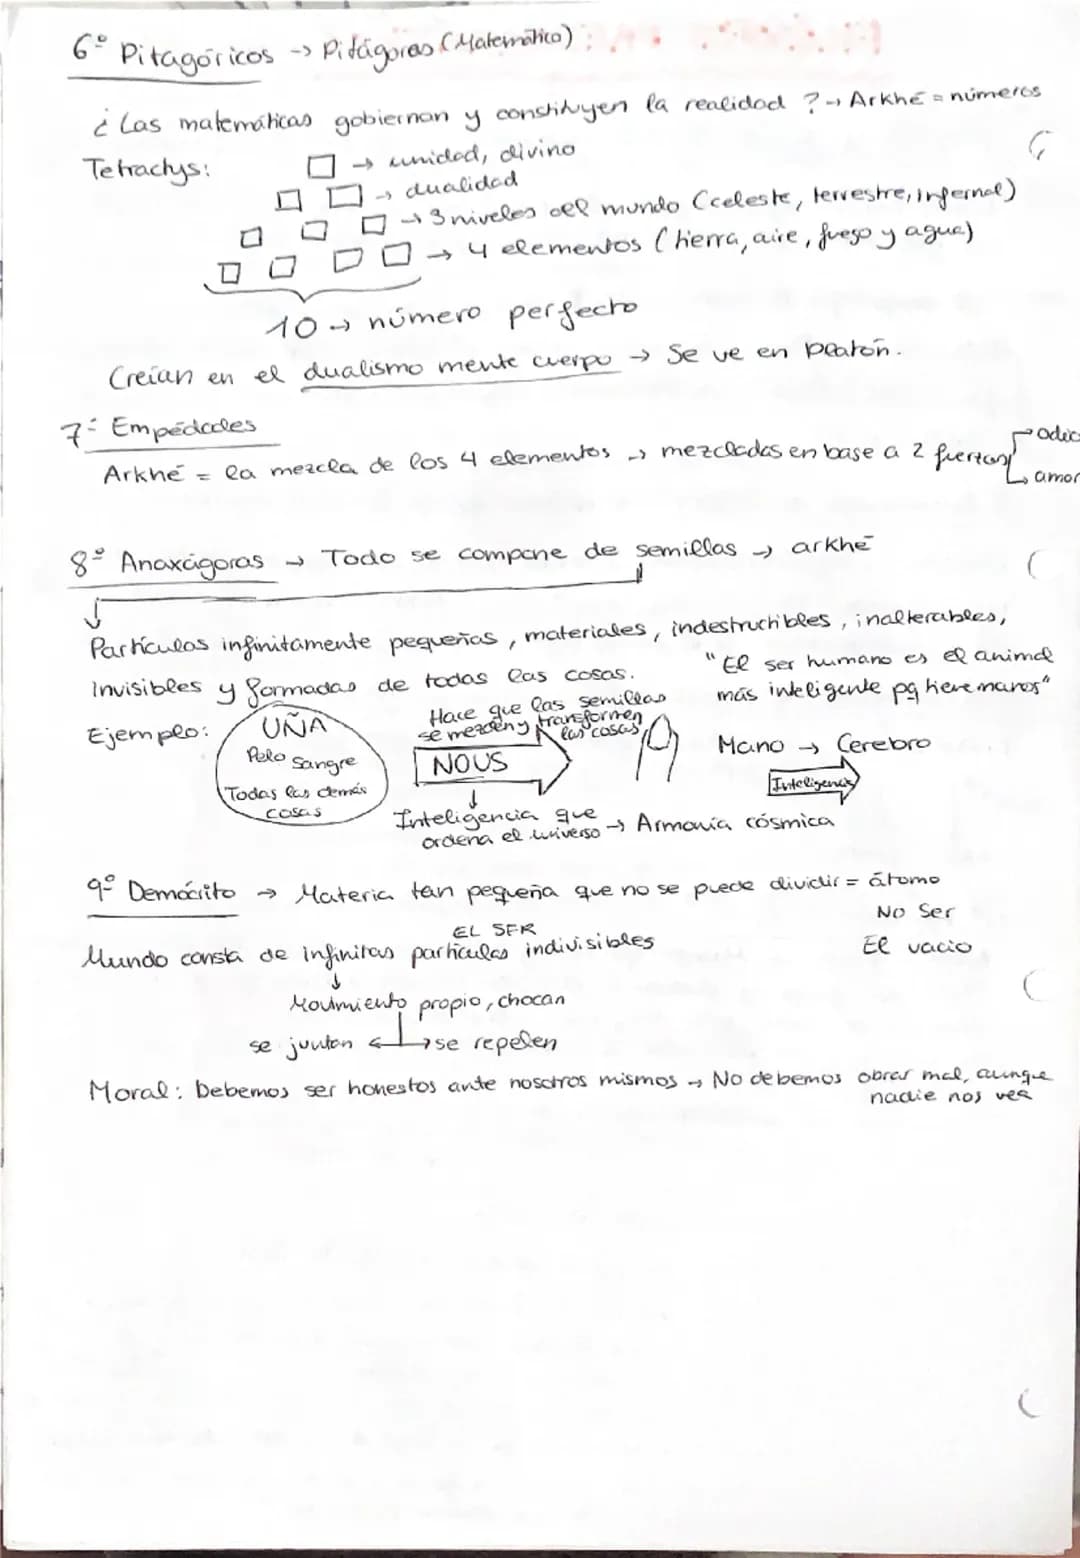 6º Pitagóricos -> Pitágoras (Matemático)
¿Las matemáticas gobiernan y constituyen la realidad? → Arkhé = números
Tetractys:
→ unidad, divino
→ dualidad
→ 3 niveles del mundo (celeste, terrestre, infernal)
→ 4 elementos (tierra, aire, fuego y agua)
10 → número perfecto
Creían en el dualismo mente cuerpo → Se ve en Platón.
7º Empédocles
Arkhé = la mezcla de los 4 elementos → mezclados en base a 2 fuerzas
→ odio
→ amor
8º Anaxágoras → Todo se compone de semillas → arkhé
Partículas infinitamente pequeñas, materiales, indestructibles, inalterables,
invisibles y formadas de todas las cosas.
"El ser humano es el animal
más inteligente pq tiene manos"
Ejemplo:
UÑA
Pelo Sangre
Todas las demás
cosas
Hace que las semillas
se mezclen y transformen
las cosas
NOUS
Inteligencia que
ordena el universo → Armonía cósmica
Mano → Cerebro
Inteligencia
9º Demócrito → Materia tan pequeña que no se puede dividir = átomo
EL SER
No Ser
Mundo consta de infinitas partículas indivisibles
El vacío
Movimiento propio, chocan
se juntan ← → se repelen
Moral: Debemos ser honestos ante nosotros mismos → No debemos obrar mal, aunque
nadie nos vea